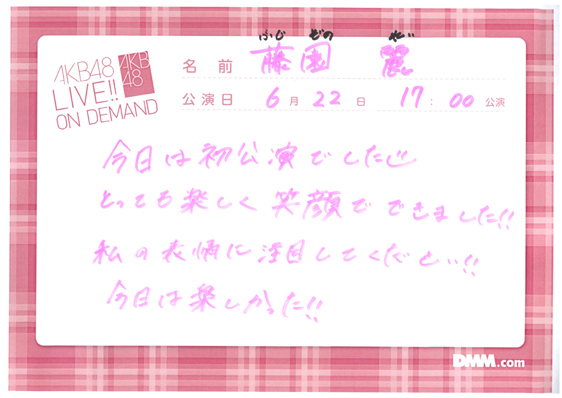 ふじ ぞの れい
AKB48
LIVE!!
ON DEMAND
AKB
48
名前 藤園 麗
公演日 6月22日 17:00公演
今日は初公演でした
とっても楽しく笑顔でできました!!
私の表情に注目してください!!
今日は楽しかった!!
DMM.com